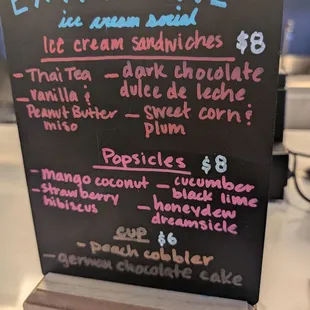 ice cream social
Ice cream sandwiches $8
- Thai Tea
- vanilla &
Peanut Butter
miso
- dark chocolate
dulce de leche
- sweet corn &
plum
Popsicles $8
- mango coconut
- strawberry
hibiscus
- cucumber
black lime
- honeydew
dreamsicle
cup $6
- peach cobbler
- german chocolate cake